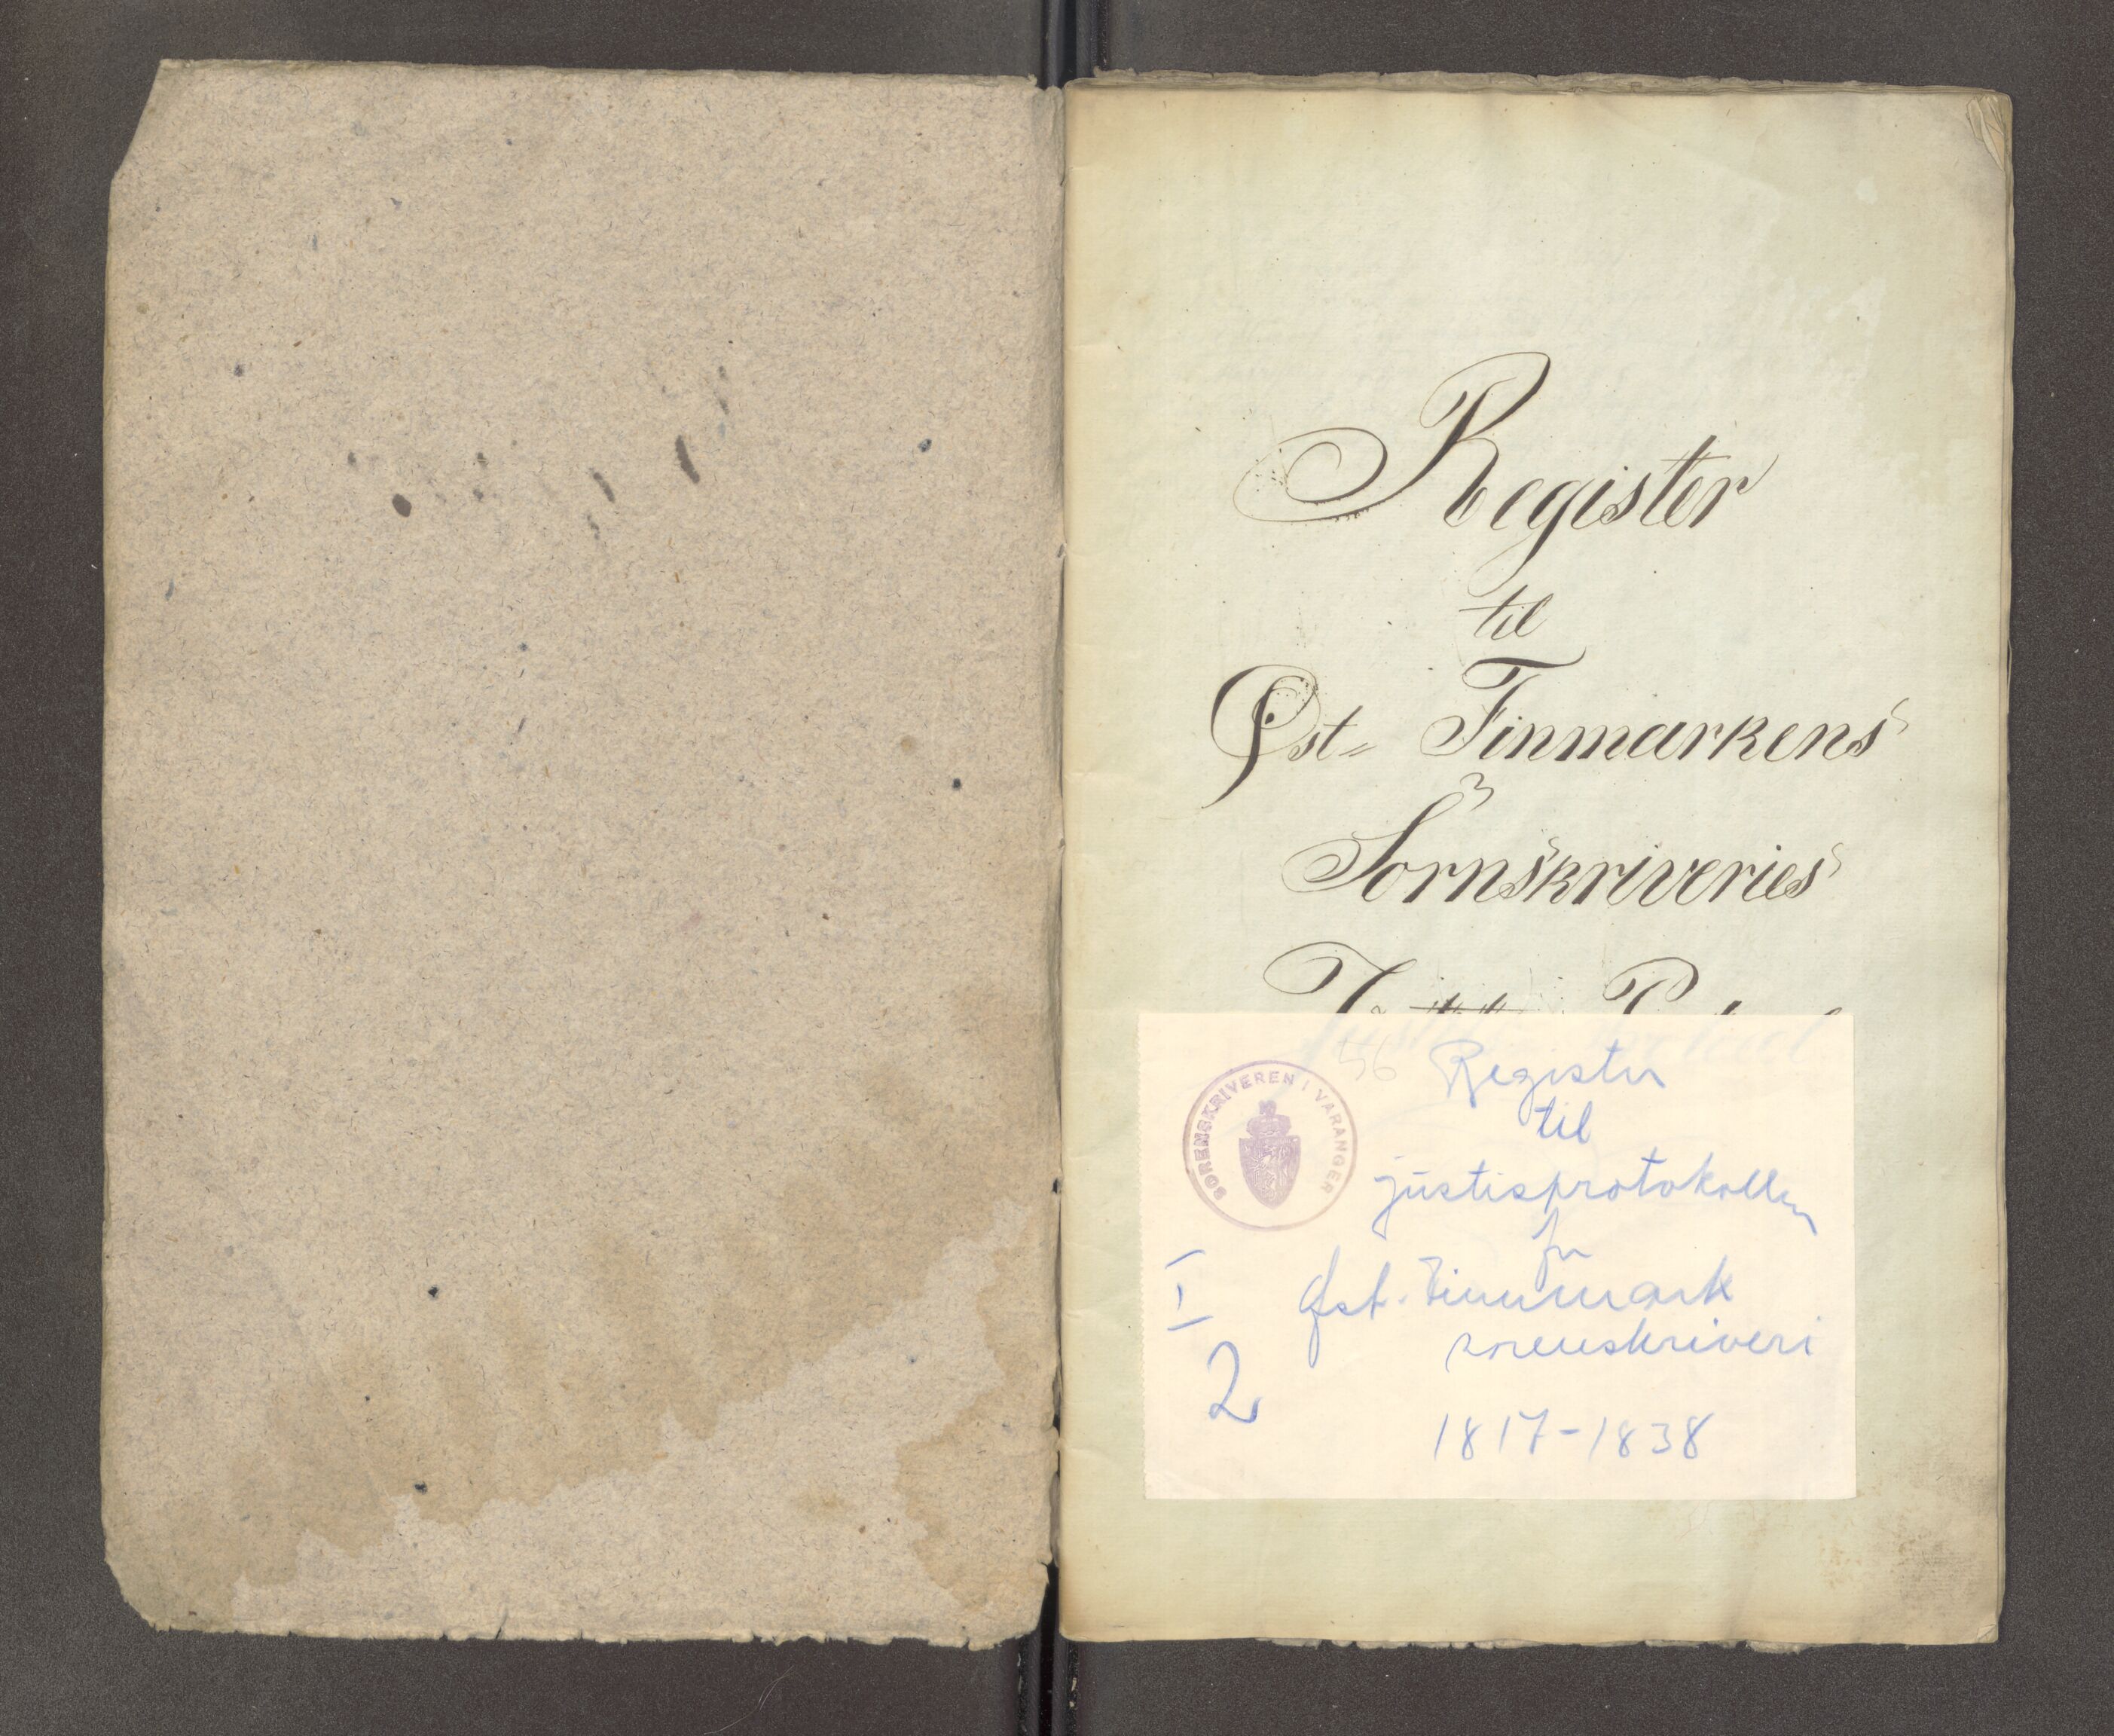 Register
til
Øst= Finmarkens
Sornskriveries
56
Register
til
justisprotokollen
for
Øst-Finnmark
sorenskriveri
1817-1838
SORENSKRIVEREN I VARANGER
I
2